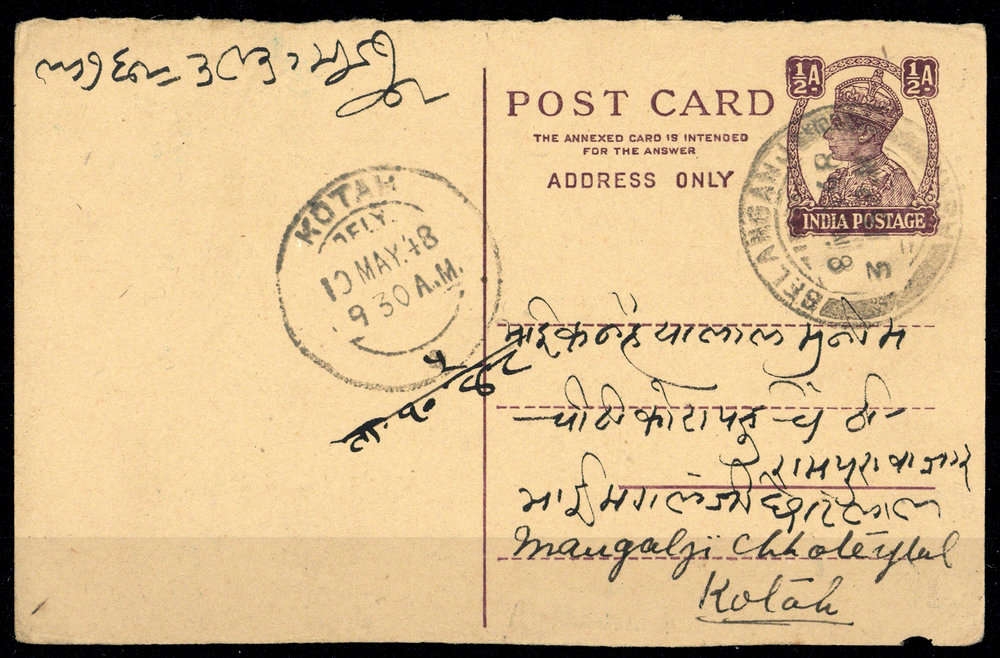 ½A ½A
POST CARD
THE ANNEXED CARD IS INTENDED
FOR THE ANSWER
ADDRESS ONLY
INDIA POSTAGE
BELANGANJ
8 MAY 48
KOTAH
DELY.
10 MAY. 48
9 30 A.M.
भाई कन्हैयालाल मुनीम
चीठी कोटा पहुंचे ठी-
रामपुरा बाजार
भाई मगलजी छोटेलाल
Mangalji Chhoteylal
Kotah